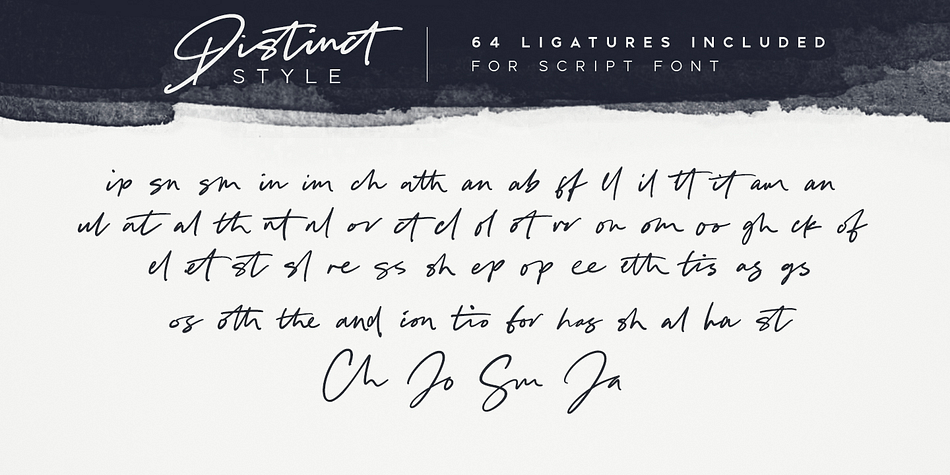 Distinct
STYLE
64 LIGATURES INCLUDED
FOR SCRIPT FONT
ip sn sm in im ch ath an ab ff ll il tt it am an
ul at al th nt al or ct cl ol ot rr on om oo gh ck of
el et st sl re ss sh ep op ee eth tis as gs
os oth the and ion tio for has sh al ha st
Ch Jo Sm Ja